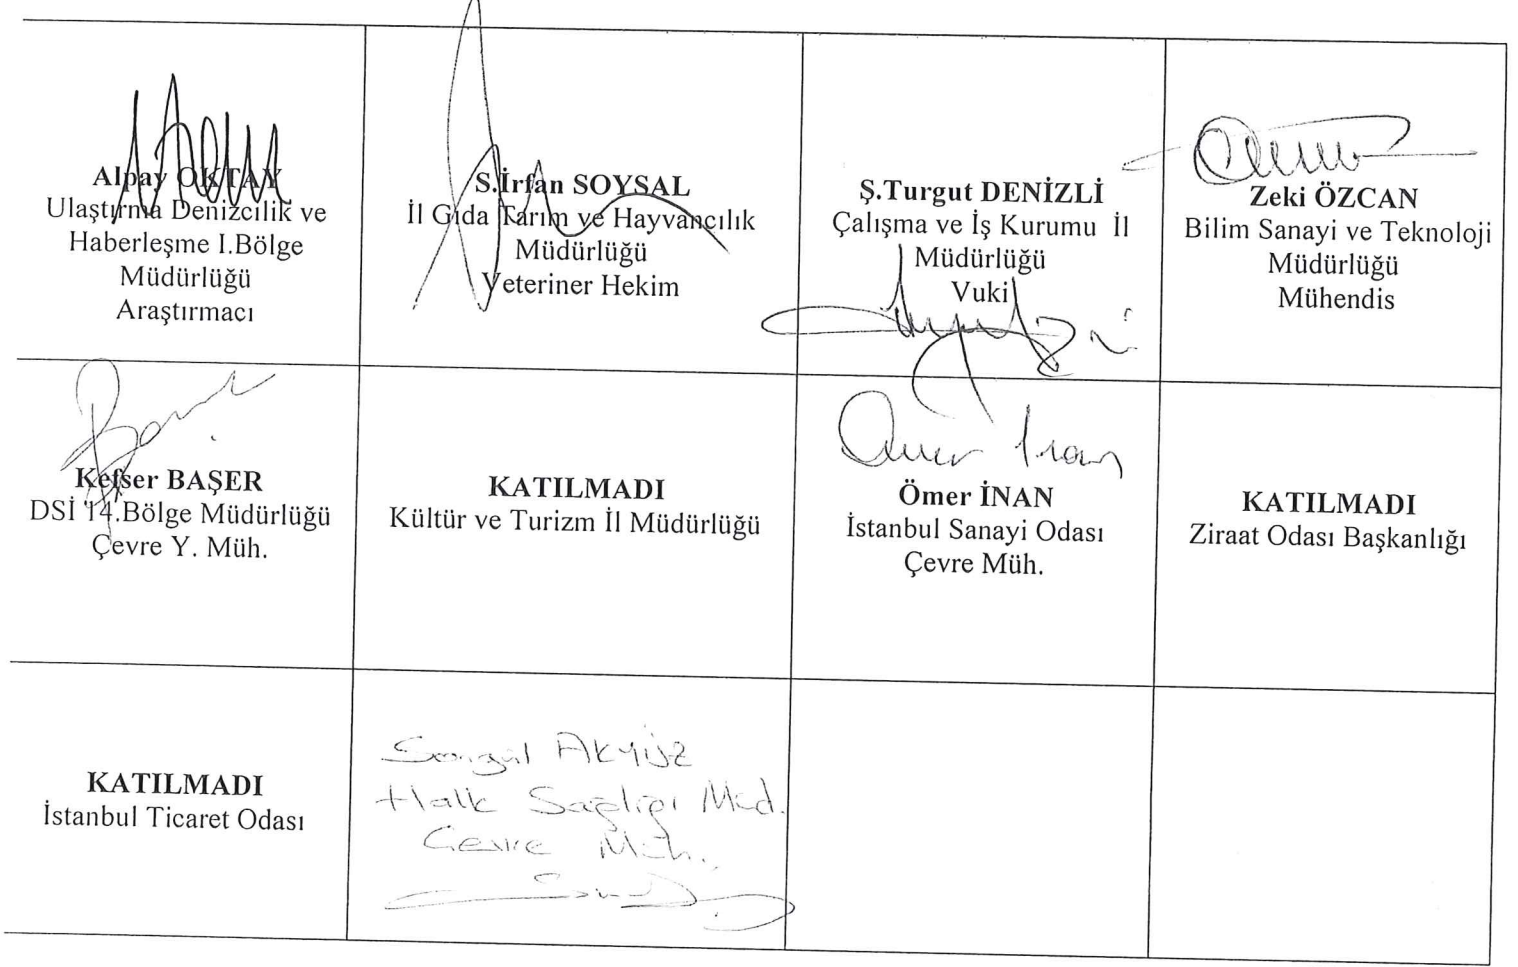 Alpay OKTAY
Ulaştırma Denizcilik ve
Haberleşme I.Bölge
Müdürlüğü
Araştırmacı
S.İrfan SOYSAL
İl Gıda Tarım ve Hayvancılık
Müdürlüğü
Veteriner Hekim
Ş.Turgut DENİZLİ
Çalışma ve İş Kurumu İl
Müdürlüğü
Vuki
Zeki ÖZCAN
Bilim Sanayi ve Teknoloji
Müdürlüğü
Mühendis
Kefser BAŞER
DSİ 14.Bölge Müdürlüğü
Çevre Y. Müh.
KATILMADI
Kültür ve Turizm İl Müdürlüğü
Ömer İnan
Ömer İNAN
İstanbul Sanayi Odası
Çevre Müh.
KATILMADI
Ziraat Odası Başkanlığı
KATILMADI
İstanbul Ticaret Odası
Songül AKYÜZ
Halk Sağlığı Müd.
Çevre Müh.